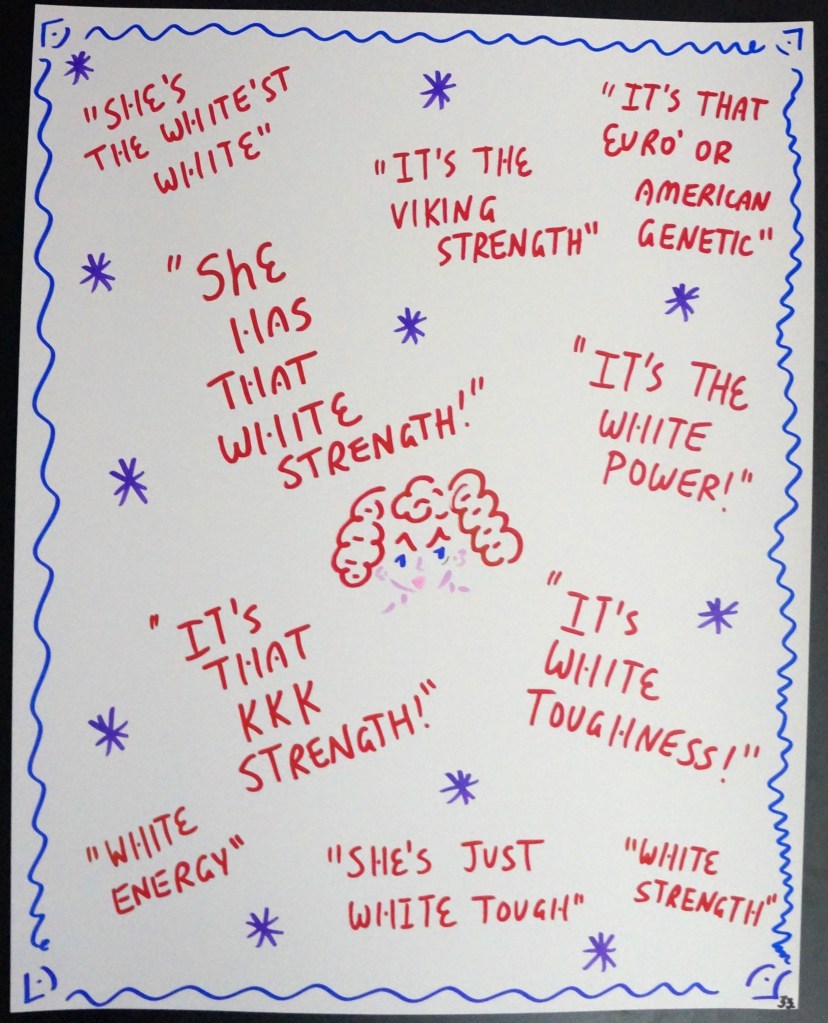 "SHE'S
THE WHITE'ST
WHITE"
"IT'S THE
VIKING
STRENGTH"
"IT'S THAT
EURO' OR
AMERICAN
GENETIC"
"ShE
HAS
THAT
WHITE
STRENGTH!"
"IT'S THE
WHITE
POWER!"
"IT'S
THAT
KKK
STRENGTH!"
"IT'S
WHITE
TOUGHNESS!"
"WHITE
ENERGY"
"SHE'S JUST
WHITE TOUGH"
"WHITE
STRENGTH"